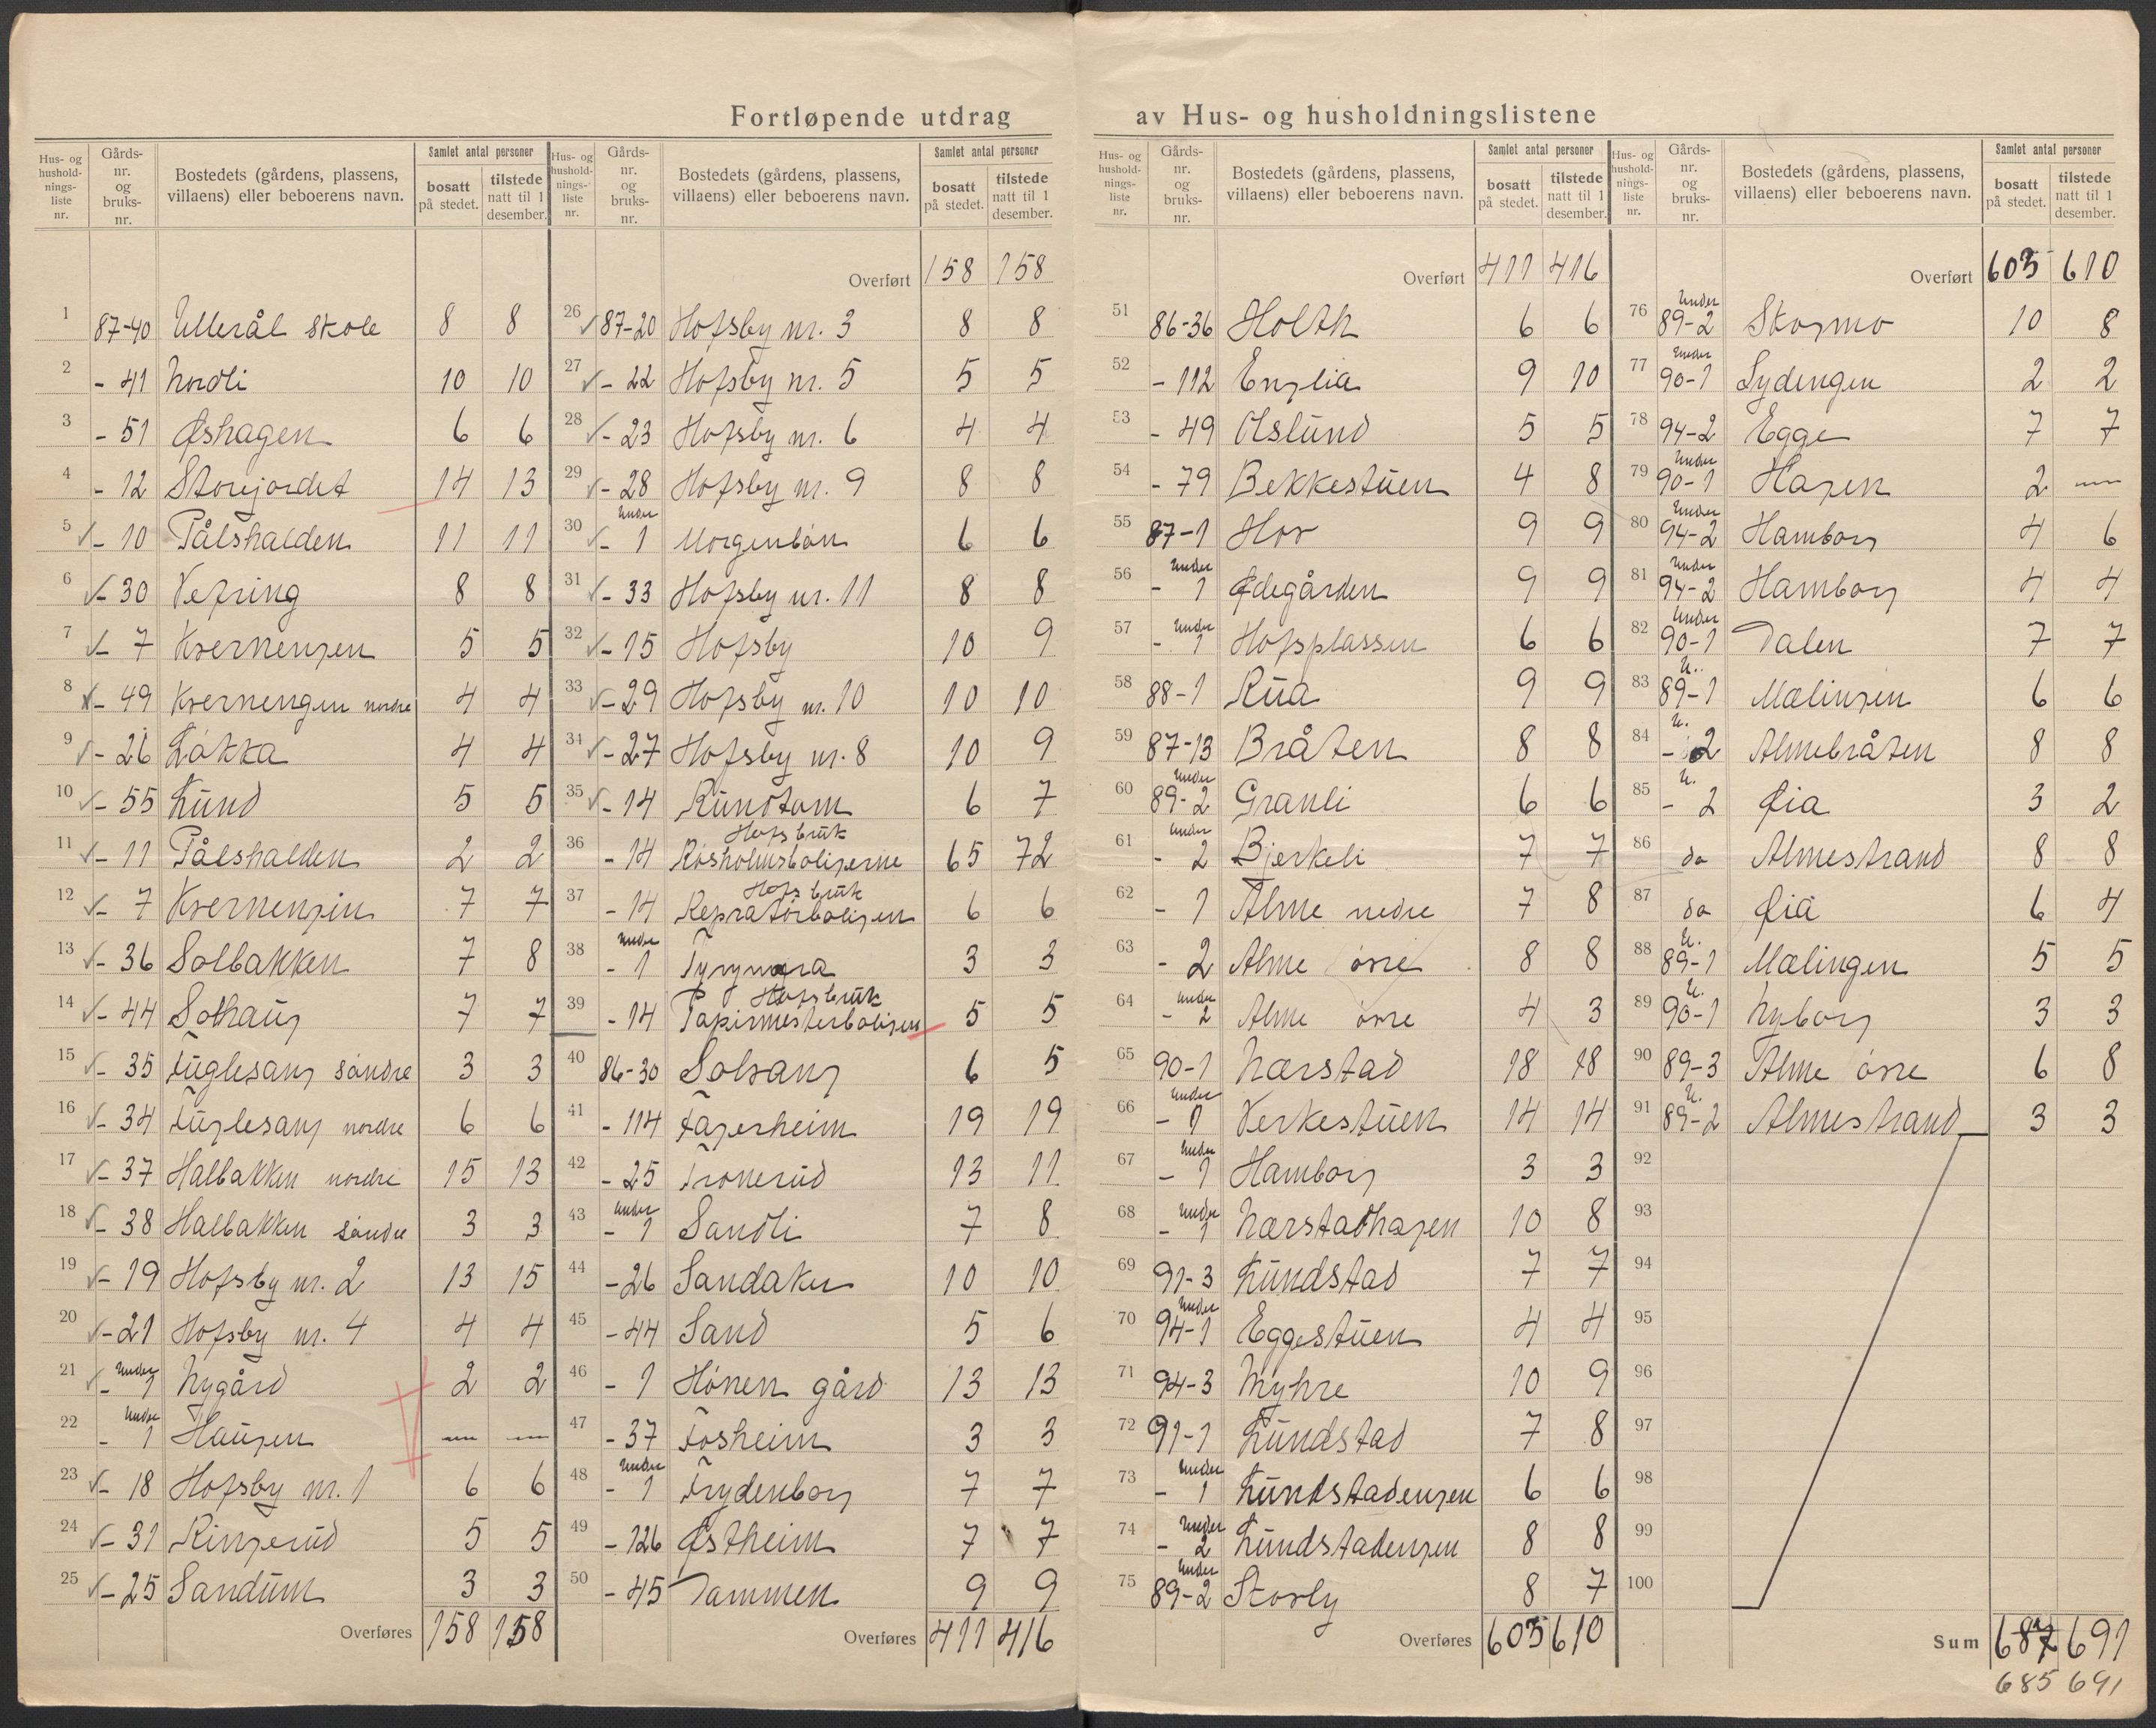 Fortløpende utdrag av Hus- og husholdningslistene
Hus- og hushold-nings-liste nr. Gårds-nr. og bruks-nr. Bostedets (gårdens, plassens, villaens) eller beboerens navn. Samlet antal personer bosatt på stedet. tilstede natt til 1 desember.
1 87-40 Ullerål skole 8 8
2 - 41 Nordli 10 10
3 - 51 Øshagen 6 6
4 - 12 Storejordet 14 13
5 - 10 Pålshalden 11 11
6 - 30 Vefring 8 8
7 - 7 Kvernengen 5 5
8 - 49 Kvernengen nordre 4 4
9 - 26 Løkka 4 4
10 - 55 Lund 5 5
11 - 11 Pålshalden 2 2
12 - 7 Kvernengen 7 7
13 - 36 Solbakken 7 8
14 - 44 Solhaug 7 7
15 - 35 Fuglesang søndre 3 3
16 - 34 Fuglesang nordre 6 6
17 - 37 Halbakken nordre 15 13
18 - 38 Halbakken søndre 3 3
19 - 19 Hofsby nr. 2 13 15
20 - 21 Hofsby nr. 4 4 4
21 - under 1 Nygård 2 2
22 - under 1 Haugen — —
23 - 18 Hofsby nr. 1 6 6
24 - 31 Ringerud 5 5
25 - 25 Sandum 3 3
Overføres 158 158
Hus- og hushold-nings-liste nr. Gårds-nr. og bruks-nr. Bostedets (gårdens, plassens, villaens) eller beboerens navn. Samlet antal personer bosatt på stedet. tilstede natt til 1 desember.
Overført 158 158
26 87-20 Hofsby nr. 3 8 8
27 - 22 Hofsby nr. 5 5 5
28 - 23 Hofsby nr. 6 4 4
29 - 28 Hofsby nr. 9 8 8
30 - under 1 Morgenbøn 6 6
31 - 33 Hofsby nr. 11 8 8
32 - 15 Hofsby 10 9
33 - 29 Hofsby nr. 10 10 10
34 - 27 Hofsby nr. 8 10 9
35 - 14 Rundtom 6 7
36 - 14 Hofs bruk Røsholmsboligerne 65 72
37 - 14 Hofs bruk Repratørboligen 6 6
38 - under 1 Tyrymyra 3 3
39 - 14 Hofsbruk Papirmesterboligen 5 5
40 86-30 Solvang 6 5
41 - 114 Fagerheim 19 19
42 - 25 Tronerud 13 11
43 - under 1 Sandli 7 8
44 - 26 Sandaker 10 10
45 - 44 Sand 5 6
46 - 1 Hønen gård 13 13
47 - 37 Fosheim 3 3
48 - under 1 Frydenborg 7 7
49 - 126 Østheim 7 7
50 - 45 Dammen 9 9
Overføres 411 416
Hus- og hushold-nings-liste nr. Gårds-nr. og bruks-nr. Bostedets (gårdens, plassens, villaens) eller beboerens navn. Samlet antal personer bosatt på stedet. tilstede natt til 1 desember.
Overført 411 416
51 86-36 Holth 6 6
52 - 112 Englia 9 10
53 - 49 Oslund 5 5
54 - 79 Bekkestuen 4 8
55 87-1 Hov 9 9
56 - under 1 Ødegården 9 9
57 - under 1 Hofsplassen 6 6
58 88-1 Rua 9 9
59 87-13 Bråten 8 8
60 under 89-2 Granli 6 6
61 under - 2 Bjerkeli 7 7
62 - 1 Alme nedre 7 8
63 - 2 Alme øvre 8 8
64 - under 2 Alme øvre 4 3
65 90-1 Nærstad 18 18
66 under - 1 Verkestuen 14 14
67 under - 1 Hamborg 3 3
68 under - 1 Nærstadhagen 10 8
69 91-3 Lundstad 7 7
70 under 94-1 Eggestuen 4 4
71 94-3 Myhre 10 9
72 91-1 Lundstad 7 8
73 under - 1 Lundstadengen 6 6
74 under - 2 Lundstadengen 8 8
75 under 89-2 Storby 8 7
Overføres 603 610
Hus- og hushold-nings-liste nr. Gårds-nr. og bruks-nr. Bostedets (gårdens, plassens, villaens) eller beboerens navn. Samlet antal personer bosatt på stedet. tilstede natt til 1 desember.
Overført 603 610
76 under 89-2 Skogmo 10 8
77 under 90-1 Lydengen 2 2
78 94-2 Egge 7 7
79 under 90-1 Hagen 2 —
80 under 94-2 Hamborg 4 6
81 under 94-2 Hamborg 4 4
82 under 90-1 Dalen 7 7
83 U. 89-1 Mælingen 6 6
84 U. - 2 Almebråten 8 8
85 U. - 2 Øia 3 2
86 do Almestrand 8 8
87 do Øia 6 4
88 U. 89-1 Mælingen 5 5
89 U. 90-1 Nyborg 3 3
90 89-3 Alme øvre 6 8
91 U. 89-2 Almestrand 3 3
92
93
94
95
96
97
98
99
100
Sum 687 691
685 691